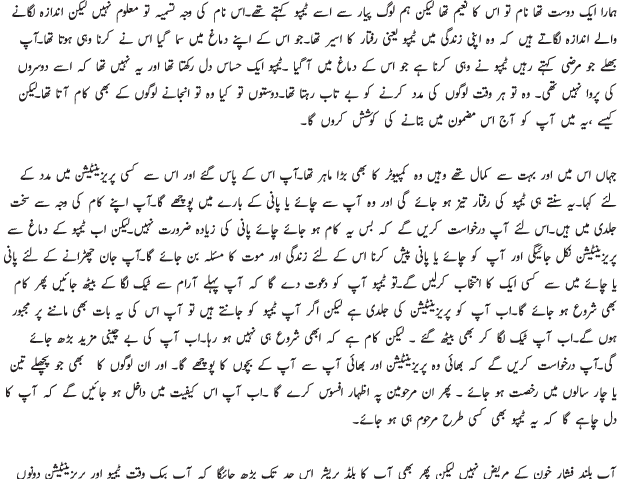 ہمارا ایک دوست تھا نام تو اس کا نعیم تھا لیکن ہم لوگ پیار سے اسے ٹیمپو کہتے تھے۔اس نام کی وجہ تسمیہ تو معلوم نہیں لیکن اندازہ لگانے
والے اندازہ لگاتے ہیں کہ وہ اپنی زندگی میں ٹیمپو یعنی رفتار کا اسیر تھا۔جو اس کے اپنے دماغ میں سما گیا اس نے کرنا وہی ہوتا تھا۔آپ
بھلے جو مرضی کہتے رہیں ٹیمپو نے وہی کرنا ہے جو اس کے دماغ میں آگیا ۔ٹیمپو ایک حساس دل رکھتا تھا اور یہ نہیں تھا کہ اسے دوسروں
کی پروا نہیں تھی۔ وہ تو ہر وقت لوگوں کی مدد کرنے کو بے تاب رہتا تھا۔دوستوں تو کیا وہ تو انجانے لوگوں کے بھی کام آتا تھا۔لیکن
کیسے ،یہ میں آپ کو آج اس مضمون میں بتانے کی کوشش کروں گا۔
جہاں اس میں اور بہت سے کمال تھے وہیں وہ کمپیوٹر کا بھی بڑا ماہر تھا۔آپ اس کے پاس گئے اور اس سے کسی پریزینٹیشن میں مدد کے
لئے کہا۔یہ سنتے ہی ٹیمپو کی رفتار تیز ہو جائے گی اور وہ آپ سے چائے یا پانی کے بارے میں پوچھے گا۔آپ اپنے کام کی وجہ سے سخت
جلدی میں ہیں۔اس لئے آپ درخواست کریں گے کہ بس یہ کام ہو جائے چائے پانی کی زیادہ ضرورت نہیں۔لیکن اب ٹیمپو کے دماغ سے
پریزینٹیشن نکل جائیگی اور آپ کو چائے یا پانی پیش کرنا اس کے لئے زندگی اور موت کا مسئلہ بن جائے گا۔آپ جان چھڑانے کے لئے پانی
یا چائے میں سے کسی ایک کا انتخاب کرلیں گے۔تو ٹیمپو آپ کو دعوت دے گا کہ آپ پہلے آرام سے ٹیک لگا کے بیٹھ جائیں پھر کام
بھی شروع ہو جائے گا۔اب آپ کو پریزینٹیشن کی جلدی ہے لیکن اگر آپ ٹیمپو کو جانتے ہیں تو آپ اس کی یہ بات بھی ماننے پر مجبور
ہوں گے۔اب آپ ٹیک لگا کر بھی بیٹھ گئے ۔ لیکن کام ہے کہ ابھی شروع ہی نہیں ہو رہا۔اب آپ کی بے چینی مزید بڑھ جائے
گی۔آپ درخواست کریں گے کہ بھائی وہ پریزینٹیشن اور بھائی آپ سے آپ کے بچوں کا پوچھے گا۔ اور ان لوگوں کا بھی جو پچھلے تین
یا چار سالوں میں رخصت ہو جائے ۔ پھر ان مرحومین پہ اظہار افسوس کرے گا ۔اب آپ اس کیفیت میں داخل ہو جائیں گے کہ آپ کا
دل چاہے گا کہ یہ ٹیمپو بھی کسی طرح مرحوم ہی ہو جائے۔
آپ بلند فشار خون کے مریض نہیں لیکن پھر بھی آپ کا بلڈ پریشر اس حد تک بڑھ جائیگا کہ آپ بیک وقت ٹیمپو اور پریزینٹیشن دونوں